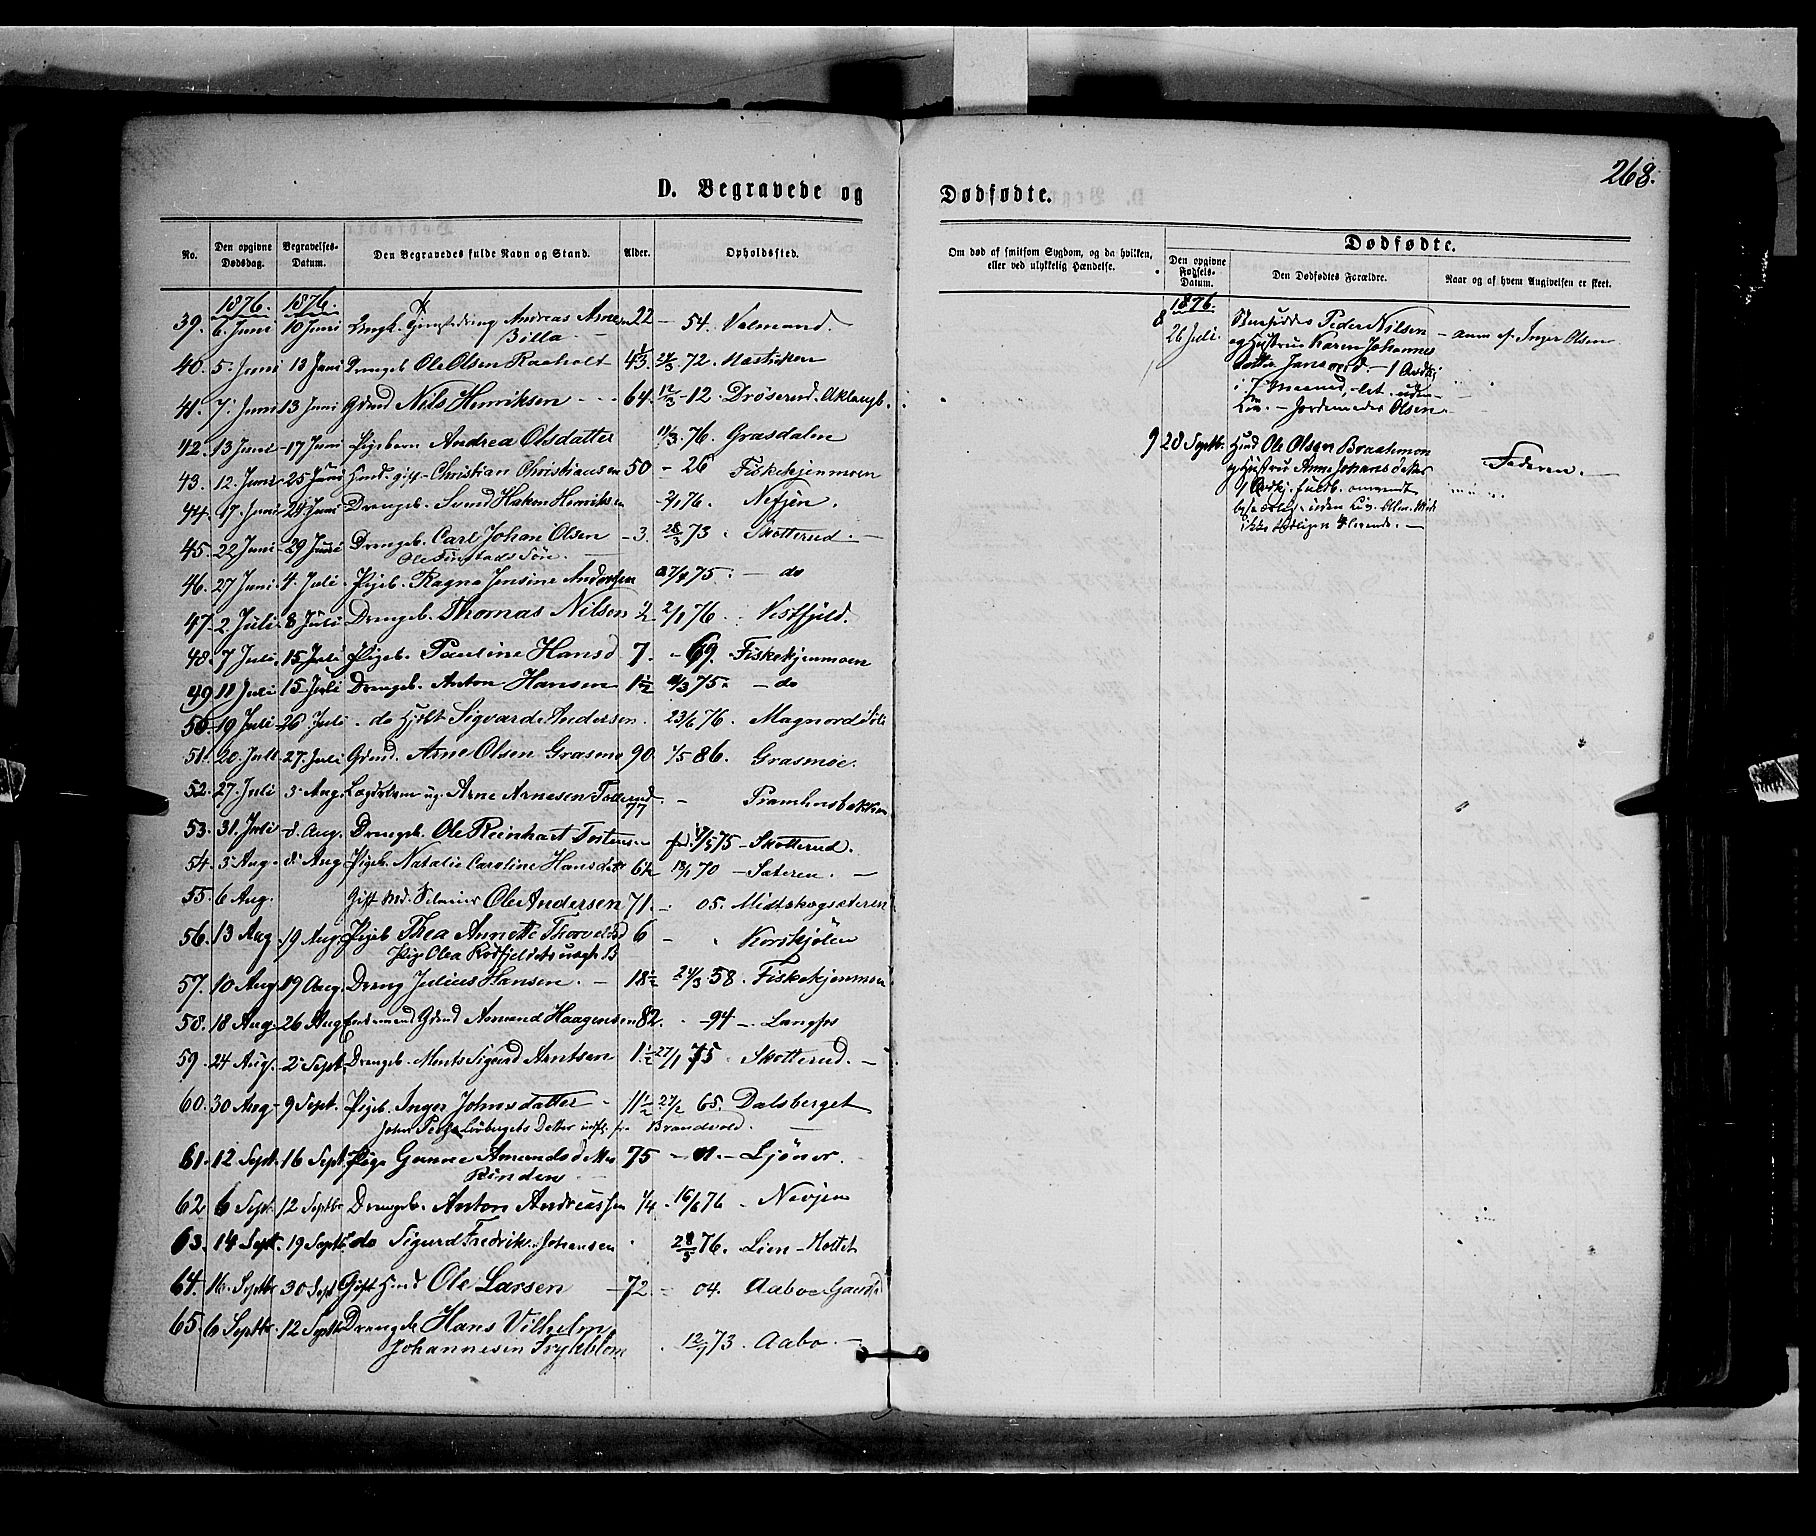 268.
D. Begravede og Dødfødte.
No. Den opgivne Dødsdag. Begravelses-Datum. Den Begravedes fulde Navn og Stand. Alder. Opholdssted.
Om død af smitsom Sygdom, og da hvilken, eller ved ulykkelig Hændelse.
Dødfødte.
Den opgivne Fødsels-Datum. Den Dødfødtes Forældre. Naar og af hvem Angivelsen er skeet.
1876. 1876.
39. 6 Juni 10 Juni Andreas Arnesen 22 - 54. Valmand.
Billa
40. 5 Juni 13 Juni Drengeb. Ole Olsen Raaholt 4 1/3. 72. Mastikon
41. 7. Juni 13 Juni Gdmd Nils Henriksen - 64. 12/3 - 12 Dröserud. Aklangb.
42. 13 Juni 17 Juni Pigebarn Andrea Olsdatter 11/3. 76. Grasdalen
43. 12. Juni 25 Juni Husmd. gift - Christian Christiansen 50 - 26 Fiskekjenmoen
44. 17. Juni 24 Juni Drengeb. Svend Hakon Henriksen 2/1 76. Nefjen.
45. 22 Juni 29 Juni Drengeb. Carl Johan Olsen - 3. 28/3 73. Skotterud. -
Ole Finstads Søn.
46. 27 Juni 4. Juli Pigeb. Ragna Jensine Andersen 75. - do
47. 2 Juli 8 Juli Drengeb. Thomas Nilsen 1/2 2/1 76. Vestfjeld.
48. 7 Juli 15 Juli Pigeb. Pauline Hansd 7. - 69. Fiskekjenmoen
49 11 Juli 15 Juli Drengeb. Anton Hansen 1 1/2 75. - do
50. 19 Juli 26 Juli. do Sigvard Andersen. 23/6 76. Magnord
51. 20. Juli 27. Juli Gdmd. Arne Olsen Grasmo 90. 1/5 86. Grasmoe.
52. 27. Juli 5 Aug. Lægdslem ug. Arne Arnesen 77 - Pramhusbakken
53. 31. Juli 8. Aug. Drengeb. Ole Reinhart Tostensen fd. 17/5 75 - Skotterud.
54. 3 Aug. 8 Aug Pigeb. Natalie Caroline Hansdatt 6 1/2 18/1 70 - Sæteren. -
55. 6 Aug. Gift Md. Ole Andersen 71. - 05. Midtskogsæteren
56. 13 Aug 19 Aug. Pigeb Thea Annette Thorvalsd 6 - Korskjölen
Pig Olea Rödfjeldets uægte B
57. 10 Aug 19 Aug. Dreng Julius Hansen. - 18 1/2 24/3 58. Fiskekjenmoen
58. 18 Aug. 26 Aug Gdmd Amund Haagensen 82. - 94 - Langfos
59. 24 Aug. 2 Sept. Drengeb. Sigurd Arntsen 1 1/2 27/1 75. Skotterud. -
60. 30 Aug. 9 Sept. Pigeb. Inger Johnsdatter - 11 1/2 27/2 65. Dalsberget
Brandvold.
61. 12 Sept. 16 Sept. Pige Gunne Amundsdatter 75 - 01. - Ljöner.
Rinden
62 6 Sept. 12 Septbr Drengeb. Anton Andreassen 1/4. 16/6 76 - Nevjen
63. 14 Sept. 19 Septb. do Sigurd Fredrik Johansen 28/5 76. Lien - Mottet
64. 16. Septbr 30 Sept. Gift Husmd Ole Larsen - 72. - 04. Aaboe
65. 6 Septbr. 12 Septbr Drengeb Hans Vilhelm
Johannesen Frykblom. 12/1 73. Aabo. -
1876.
8 26 Juli. Peder Nilsen - anm. af. Inger Olsen
og Hustru Karen Johannes
datter
i 7 Maaned, uden
Liv. - Jordemoder Olsen
9 28 Septbr. Husmd Ole Olsen Braatemon Faderen. -
og Hustru Anne Johansdatter
uden Liv.